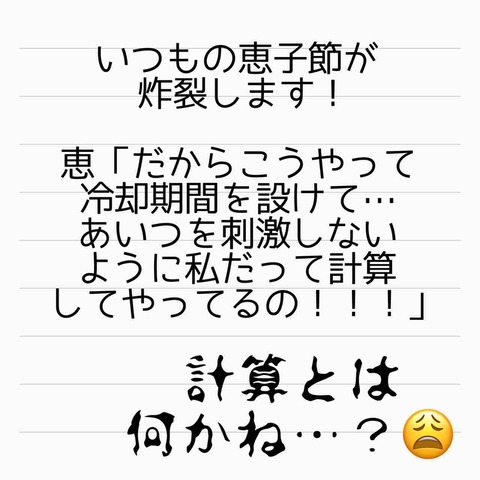 いつもの恵子節が
炸裂します！
恵「だからこうやって
冷却期間を設けて…
あいつを刺激しない
ように私だって計算
してやってるの！！！」
計算とは
何かね…？😩